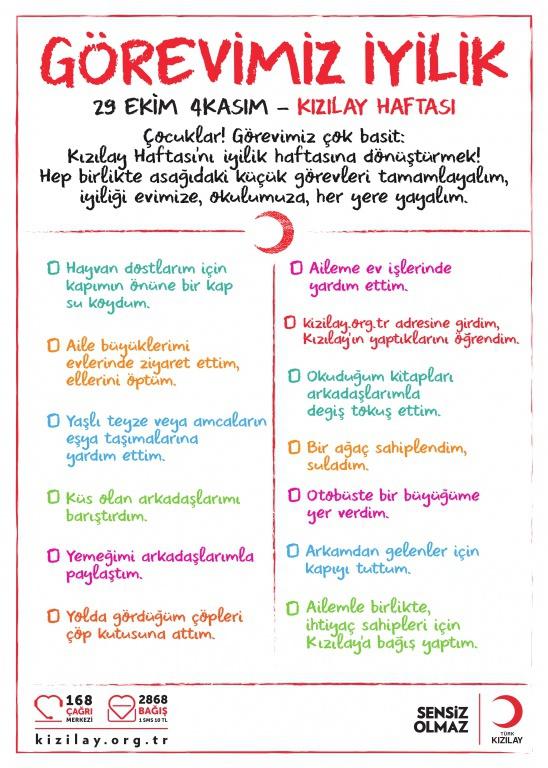 GÖREVİMİZ İYİLİK
29 EKİM 4KASIM – KIZILAY HAFTASI
Çocuklar! Görevimiz çok basit:
Kızılay Haftası'nı iyilik haftasına dönüştürmek!
Hep birlikte asağıdaki küçük görevleri tamamlayalım,
iyiliği evimize, okulumuza, her yere yayalım.
Hayvan dostlarım için
kapımın önüne bir kap
su koydum.
Aile büyüklerimi
evlerinde ziyaret ettim,
ellerini öptüm.
Yaşlı teyze veya amcaların
eşya taşımalarına
yardım ettim.
Küs olan arkadaşlarımı
barıştırdım.
Yemeğimi arkadaşlarımla
paylaştım.
Yolda gördüğüm çöpleri
çöp kutusuna attım.
Aileme ev işlerinde
yardım ettim.
kizilay.org.tr adresine girdim,
Kızılay'ın yaptıklarını öğrendim.
Okuduğum kitapları
arkadaşlarımla
değiş tokuş ettim.
Bir ağaç sahiplendim,
suladım.
Otobüste bir büyüğüme
yer verdim.
Arkamdan gelenler için
kapıyı tuttum.
Ailemle birlikte,
ihtiyaç sahipleri için
Kızılay'a bağış yaptım.
168
ÇAĞRI
MERKEZİ
2868
BAĞIŞ
1 SMS 10 TL
kizilay.org.tr
SENSİZ
OLMAZ
TÜRK
KIZILAY